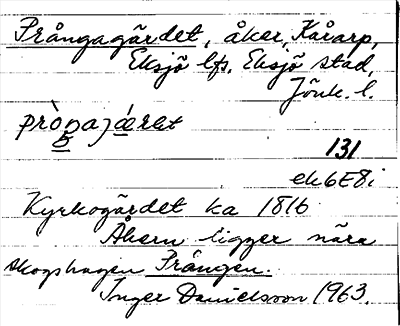 Prångagärdet, åker, Kåarp,
Eksjö lfs. Eksjö stad,
Jönk. l.
131
ek6E8i
Kyrkogärdet ka 1816
Åkern ligger nära
skogshagen Prången.
Inger Danielsson 1963.